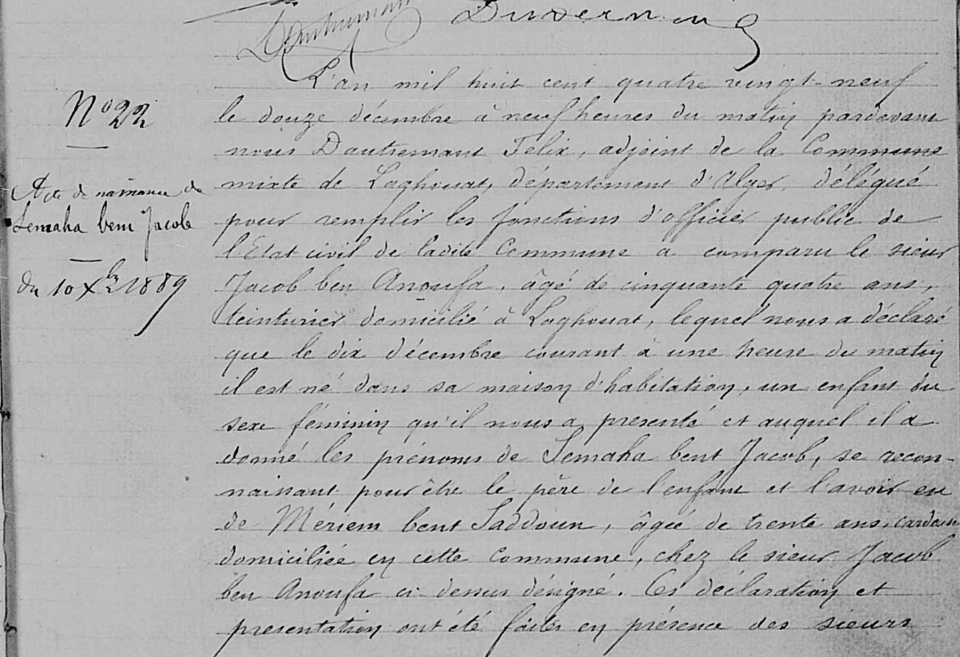 Dautremant
Duvernoy
N° 22
Acte de naissance de
Semaha bent Jacob
du 10 Xbre 1889
L'an mil huit cent quatre vingt-neuf
le douze décembre à neuf heures du matin pardevant
nous Dautremant Félix, adjoint de la Commune
mixte de Laghouat, département d'Alger, délégué
pour remplir les fonctions d'officier public de
l'Etat civil de ladite Commune a comparu le sieur
Jacob ben Anoufa, âgé de cinquante quatre ans,
teinturier domicilié à Laghouat, lequel nous a déclaré
que le dix décembre courant à une heure du matin
il est né dans sa maison d'habitation, un enfant du
sexe féminin qu'il nous a présenté et auquel il a
donné les prénoms de Semaha bent Jacob, se recon-
naissant pour être le père de l'enfant et l'avoir eu
de Mériem bent Saddoun, âgée de trente ans,
domiciliée en cette commune, chez le sieur Jacob
ben Anoufa ci dessus désigné. Ces déclaration et
présentation ont été faites en présence des sieurs